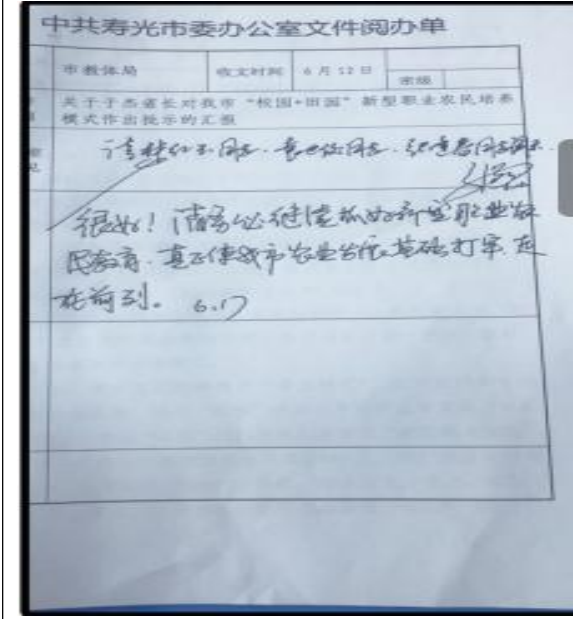 中共寿光市委办公室文件阅办单
市教体局 收文时间 6月12日 密级
关于于杰省长对我市“校园+田园”新型职业农民培养
模式作出批示的汇报
请 同志、 同志、 同志阅示.
很好！请务必继续抓好新型职业农
民教育，真正使我市农业发展基础打牢、走
在前列。 6.17